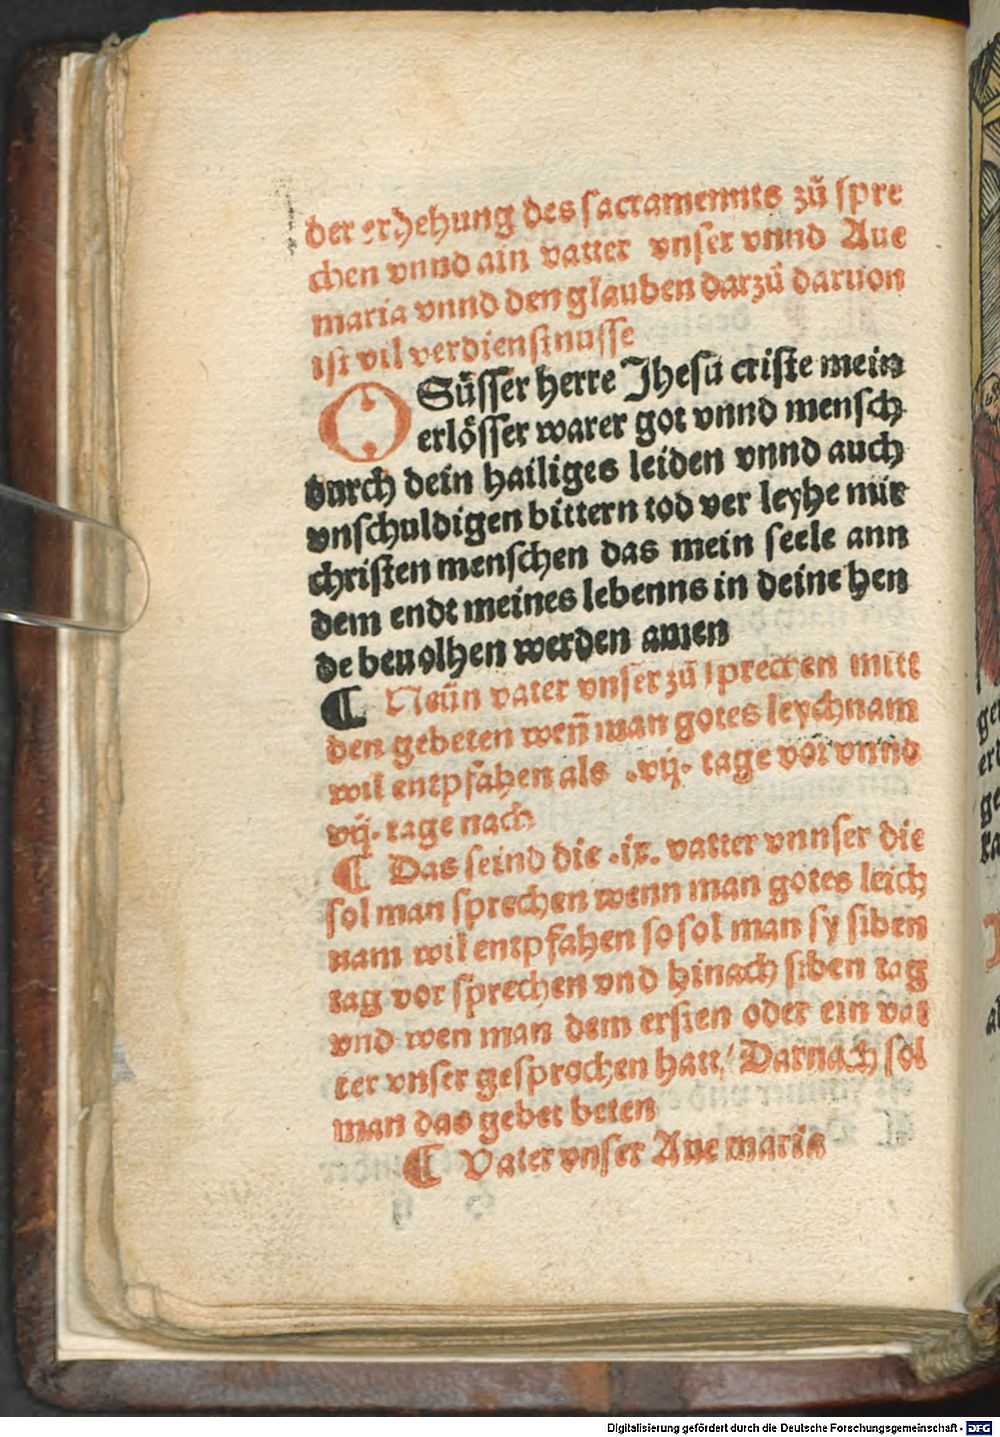 der erhehung des sacramennts zů spre
chen vnnd ain vatter vnser vnnd Aue
maria vnnd den glauben darzů daruon
ist vil verdienstnusse
O Süsser herre Jhesu criste mein
erlösser warer got vnnd mensch
durch dein hailiges leiden vnnd auch
vnschuldigen bittern tod ver leyhe mir
christen menschen das mein seele ann
dem endt meines lebenns in deine hen
de beuolhen werden amen
¶ Neün vater vnser zů sprechen mitt
den gebeten wen̄ man gotes leychnam
wil entpfahen als .vij. tage vor vnnd
vij. tage nach
¶ Das seind die .ix. vatter vnnser die
sol man sprechen wenn man gotes leich
nam wil entpfahen so sol man sy siben
tag vor sprechen vnd hinach siben tag
vnd wen man dem ersten oder ein vat
ter vnser gesprochen hatt/ Darnach sol
man das gebet beten
¶ Vater vnser Aue maria
Digitalisierung gefördert durch die Deutsche Forschungsgemeinschaft - DFG